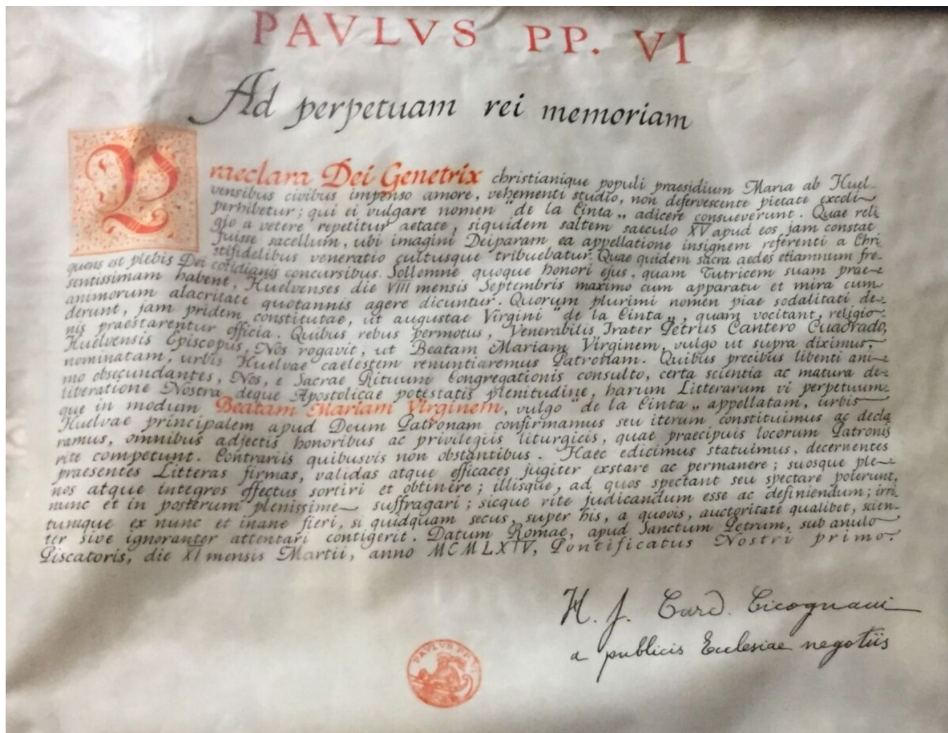 PAVLVS PP. VI
Ad perpetuam rei memoriam
Praeclara Dei Genetrix christianique populi praesidium Maria ab Huel-
vensibus civibus impenso amore, vehementi studio, non defervescente pietate excoli
perhibetur; qui ei vulgare nomen "de la Cinta„ adicere consueverunt. Quae reli-
gio a vetere repetitur aetate, siquidem saltem saeculo XV apud eos jam constat
fuisse sacellum, ubi imagini Deiparam ea appellatione insignem referenti a Chri-
stifidelibus veneratio cultusque tribuebatur. Quae quidem sacra aedes etiamnum fre-
quens est plebis Dei cotidianis concursibus. Sollemne quoque honori ejus, quam Tutricem suam prae-
sentissimam habent, Huelvenses die VIII mensis Septembris maximo cum apparatu et mira cum
animorum alacritate quotannis agere dicuntur. Quorum plurimi nomen piae sodalitati de-
derunt, jam pridem constitutae, ut augustae Virgini "de la Cinta„, quam vocitant, religio-
nis praestarentur officia. Quibus rebus permotus, Venerabilis Frater Petrus Cantero Cuadrado,
Huelvensis Episcopus, Nos rogavit, ut Beatam Mariam Virginem, vulgo ut supra diximus,
nominatam, urbis Huelvae caelestem renuntiaremus Patronam. Quibus precibus libenti ani-
mo obsecundantes, Nos, e Sacrae Rituum Congregationis consulto, certa scientia ac matura de-
liberatione Nostra deque Apostolicae potestatis plenitudine, harum Litterarum vi perpetuum-
que in modum Beatam Mariam Virginem, vulgo "de la Cinta„ appellatam, urbis
Huelvae principalem apud Deum Patronam confirmamus seu iterum constituimus ac decla-
ramus, omnibus adjectis honoribus ac privilegiis liturgicis, quae praecipuis locorum Patronis
rite competunt. Contrariis quibusvis non obstantibus. Haec edicimus statuimus, decernentes
praesentes Litteras firmas, validas atque efficaces jugiter exstare ac permanere; suosque ple-
nos atque integros effectus sortiri et obtinere; illisque, ad quos spectant seu spectare poterunt,
nunc et in posterum plenissime suffragari; sicque rite judicandum esse ac definiendum; irri-
tumque ex nunc et inane fieri, si quidquam secus, super his, a quovis, auctoritate qualibet, scien-
ter sive ignoranter attentari contigerit. Datum Romae, apud Sanctum Petrum, sub anulo
Piscatoris, die XI mensis Martii, anno MCMLXIV, Pontificatus Nostri primo.
H. J. Card. Cicognani
a publicis Ecclesiae negotiis
PAVLVS PP. VI